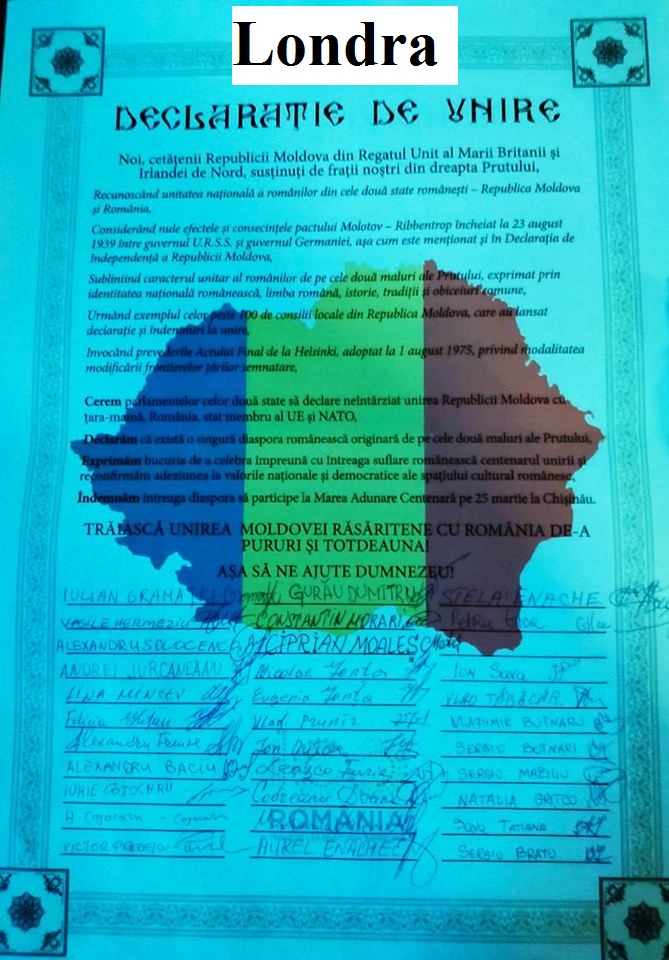 Londra
DECLARAȚIE DE UNIRE
Noi, cetățenii Republicii Moldova din Regatul Unit al Marii Britanii și
Irlandei de Nord, susținuți de frații noștri din dreapta Prutului,
Recunoscând unitatea națională a românilor din cele două state românești – Republica Moldova
și România,
Considerând nule efectele și consecințele pactului Molotov – Ribbentrop încheiat la 23 august
1939 între guvernul U.R.S.S. și guvernul Germaniei, așa cum este menționat și în Declarația de
Independență a Republicii Moldova,
Subliniind caracterul unitar al românilor de pe cele două maluri ale Prutului, exprimat prin
identitatea națională românească, limba română, istorie, tradiții și obiceiuri comune,
Urmând exemplul celor peste 100 de consilii locale din Republica Moldova, care au lansat
declarație și îndemnuri la unire,
Invocând prevederile Actului Final de la Helsinki, adoptat la 1 august 1975, privind modalitatea
modificării frontierelor țărilor semnatare,
Cerem parlamentelor celor două state să declare neîntârziat unirea Republicii Moldova cu
țara-mamă, România, stat membru al UE și NATO,
Declarăm că există o singură diaspora românească originară de pe cele două maluri ale Prutului,
Exprimăm bucuria de a celebra împreună cu întreaga suflare românească centenarul unirii și
reconfirmăm adeziunea la valorile naționale și democratice ale spațiului cultural românesc,
Îndemnăm întreaga diaspora să participe la Marea Adunare Centenară pe 25 martie la Chișinău.
TRĂIASCĂ UNIREA MOLDOVEI RĂSĂRITENE CU ROMÂNIA DE-A
PURURI ȘI TOTDEAUNA!
AȘA SĂ NE AJUTE DUMNEZEU!
IULIAN GRAMA GURĂU DUMITRU STELA ENACHE
VASILE CONSTANTIN MORARI Petru
CIPRIAN MOALES
ANDREI JURCANEANU Nicolae Ion Sava
LINA MINCEV Eugenia VLAD
Vlad VLADIMIR BUTNARU
Alexandru Ion SERGIU BUTNARI
ALEXANDRU BACIU SERGIU
NATALIA
ROMANIA Sava TATIANA
VICTOR AUREL ENACHE SERGIU BRATU